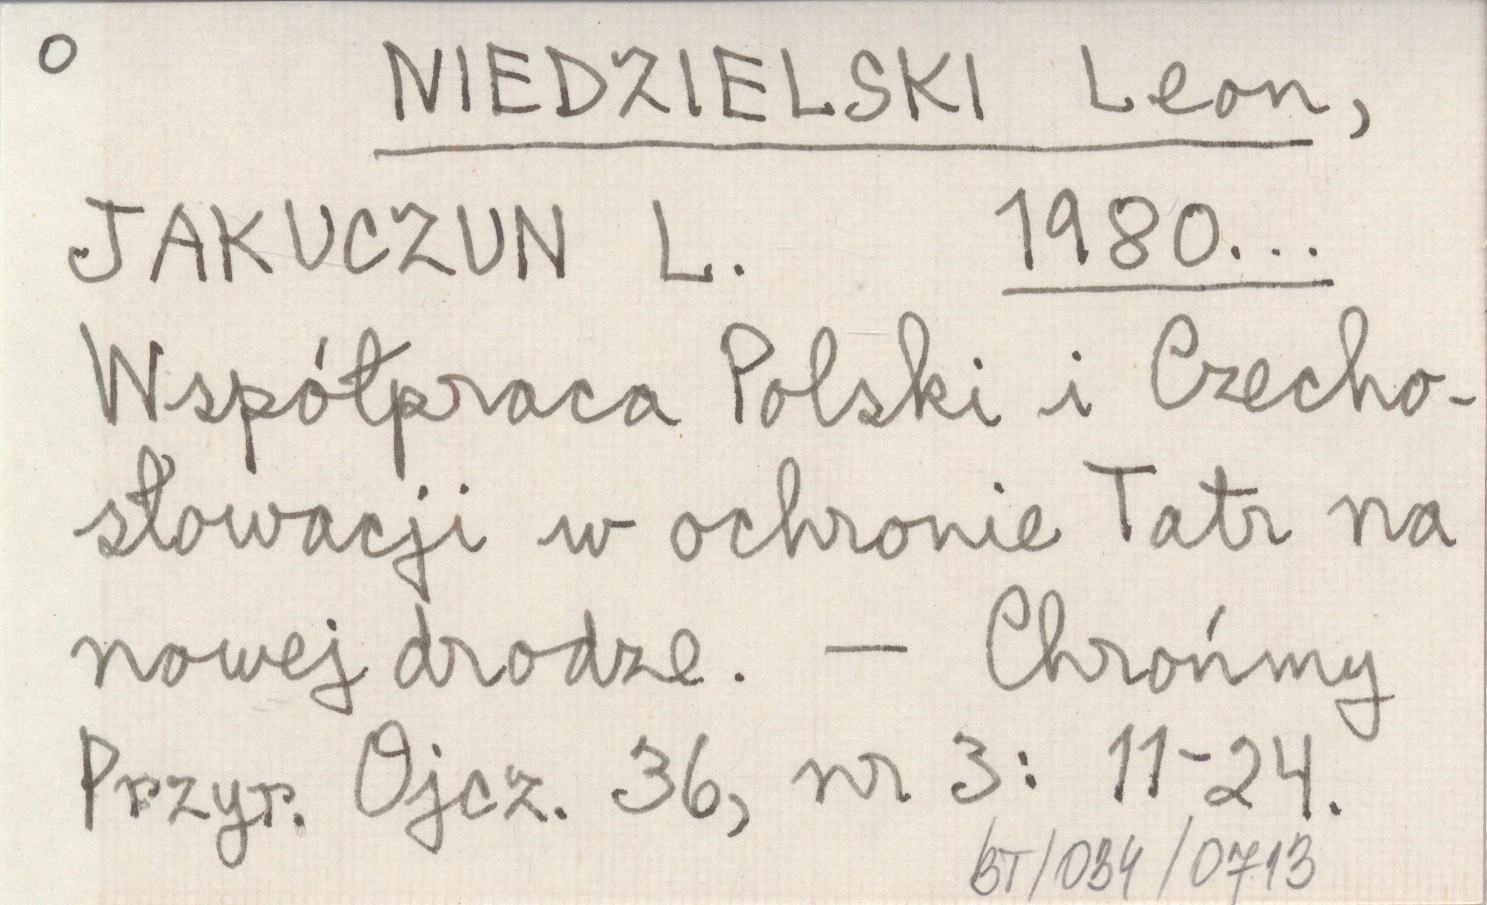 O NIEDZIELSKI Leon,
JAKUCZUN L. 1980...
Współpraca Polski i Czecho-
słowacji w ochronie Tatr na
nowej drodze. — Chrońmy
Przyr. Ojcz. 36, nr 3: 11-24.
BT/034/0713